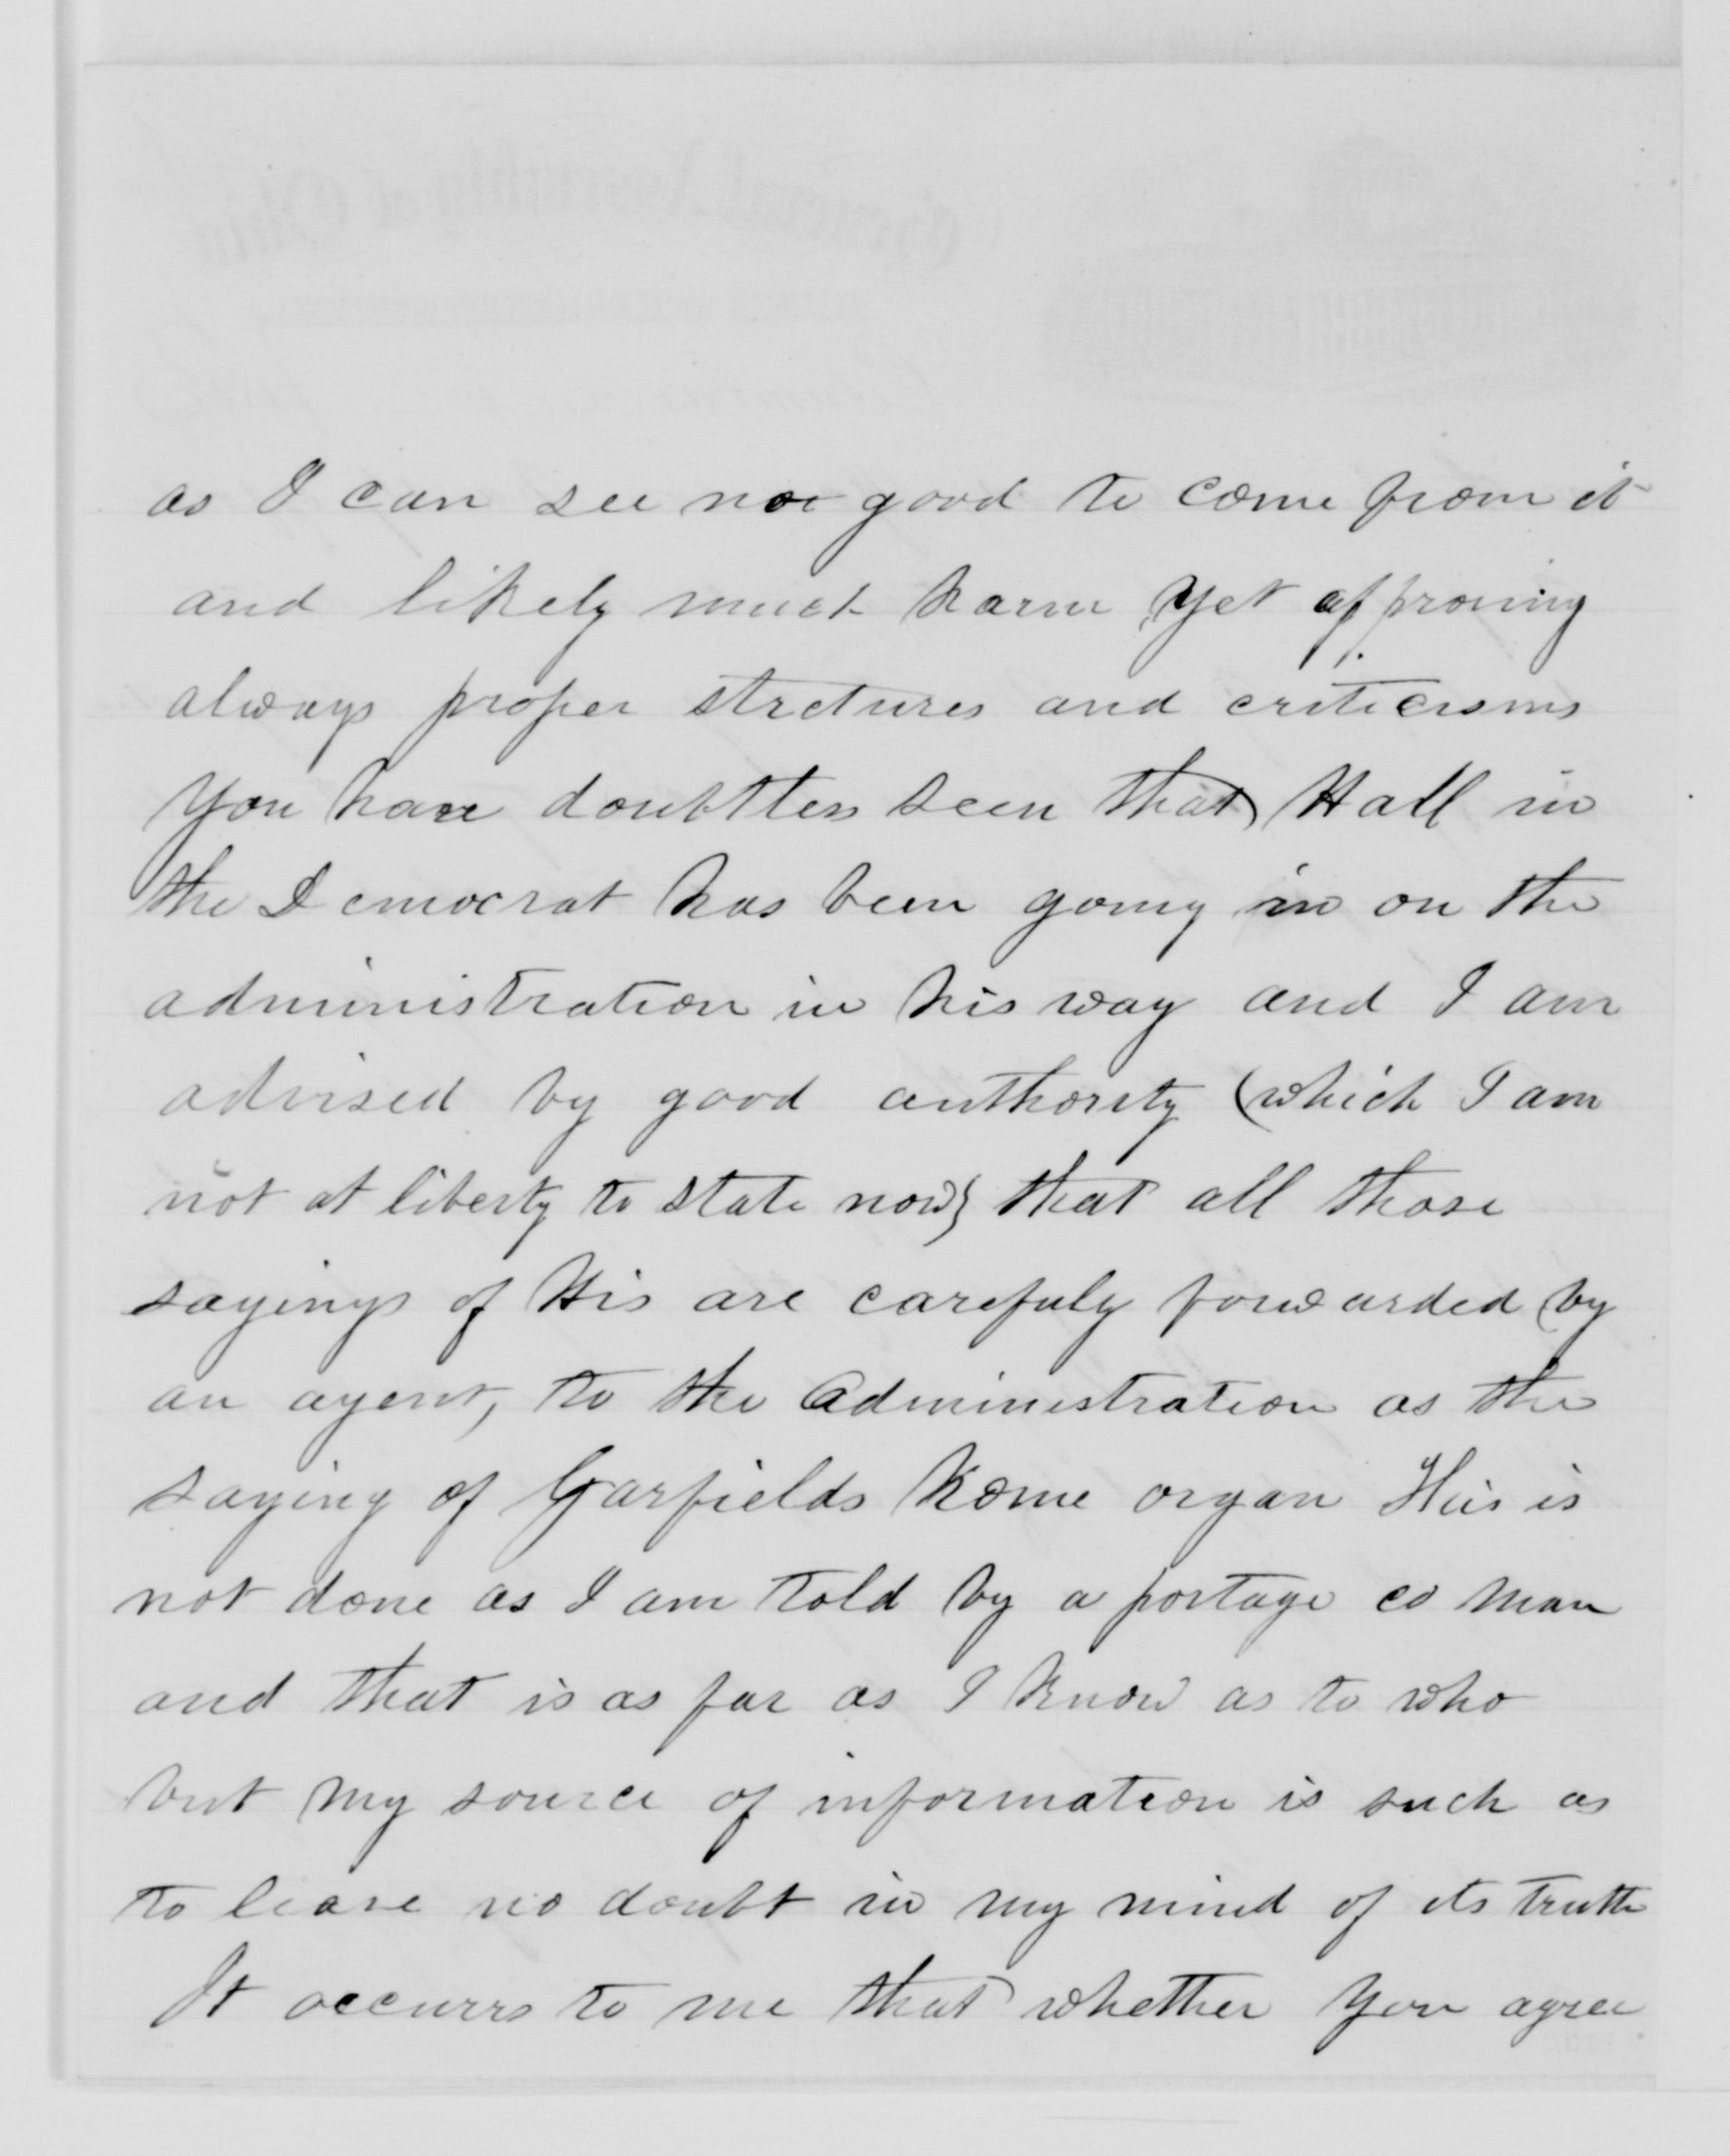 as I can see no good to come from it
and likely much harm, yet approving
always proper strctures and criticisms
You have doubtless seen that Hall in
the Democrat has been going in on the
administration in his way and I am
advised by good authority (which I am
not at liberty to state now) that all those
sayings of His are carefuly forwarded by
an agent, to the Administration as the
saying of Garfields home organ This is
not done as I am told by a portage co man
and that is as far as I know as to who
but my source of information is such as
to leave no doubt in my mind of its truth
It occurrs to me that whether you agree